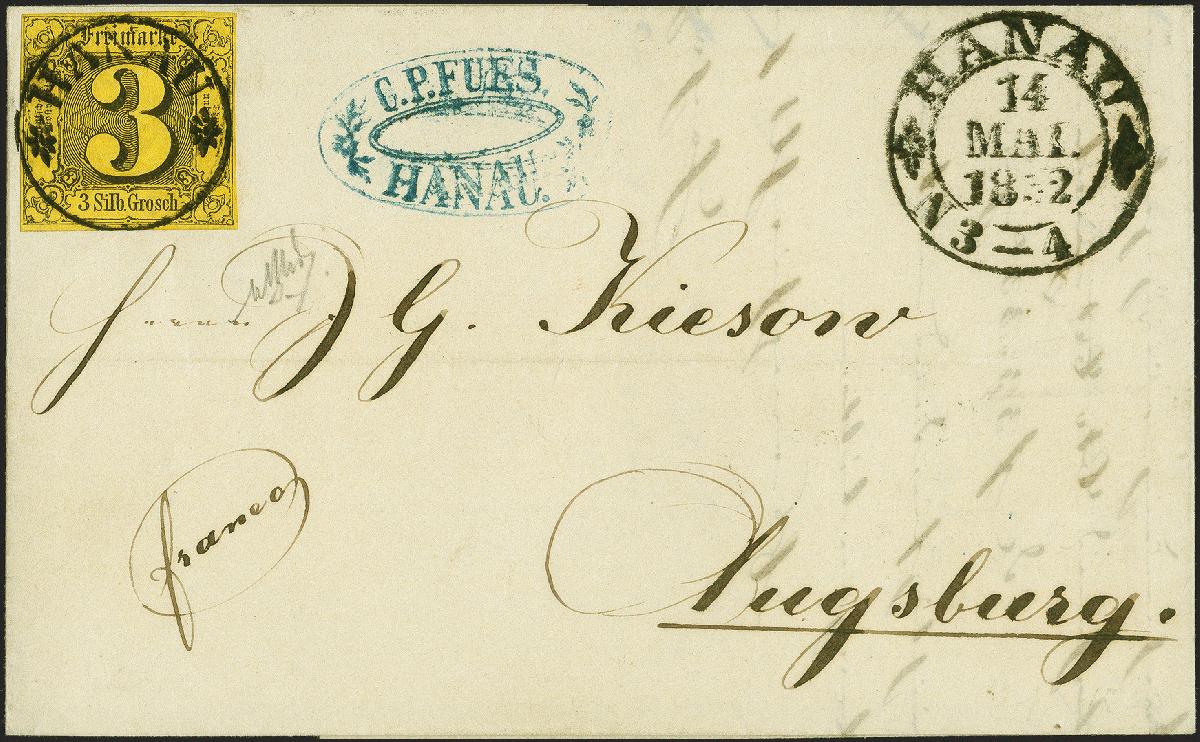 Freimarke
HANAU
3
3 Silb. Grosch
C.P. FUES.
HANAU.
HANAU
14
MAI.
1852
N 3 — 4
Herrn J G. Kiesow
franco
Augsburg.